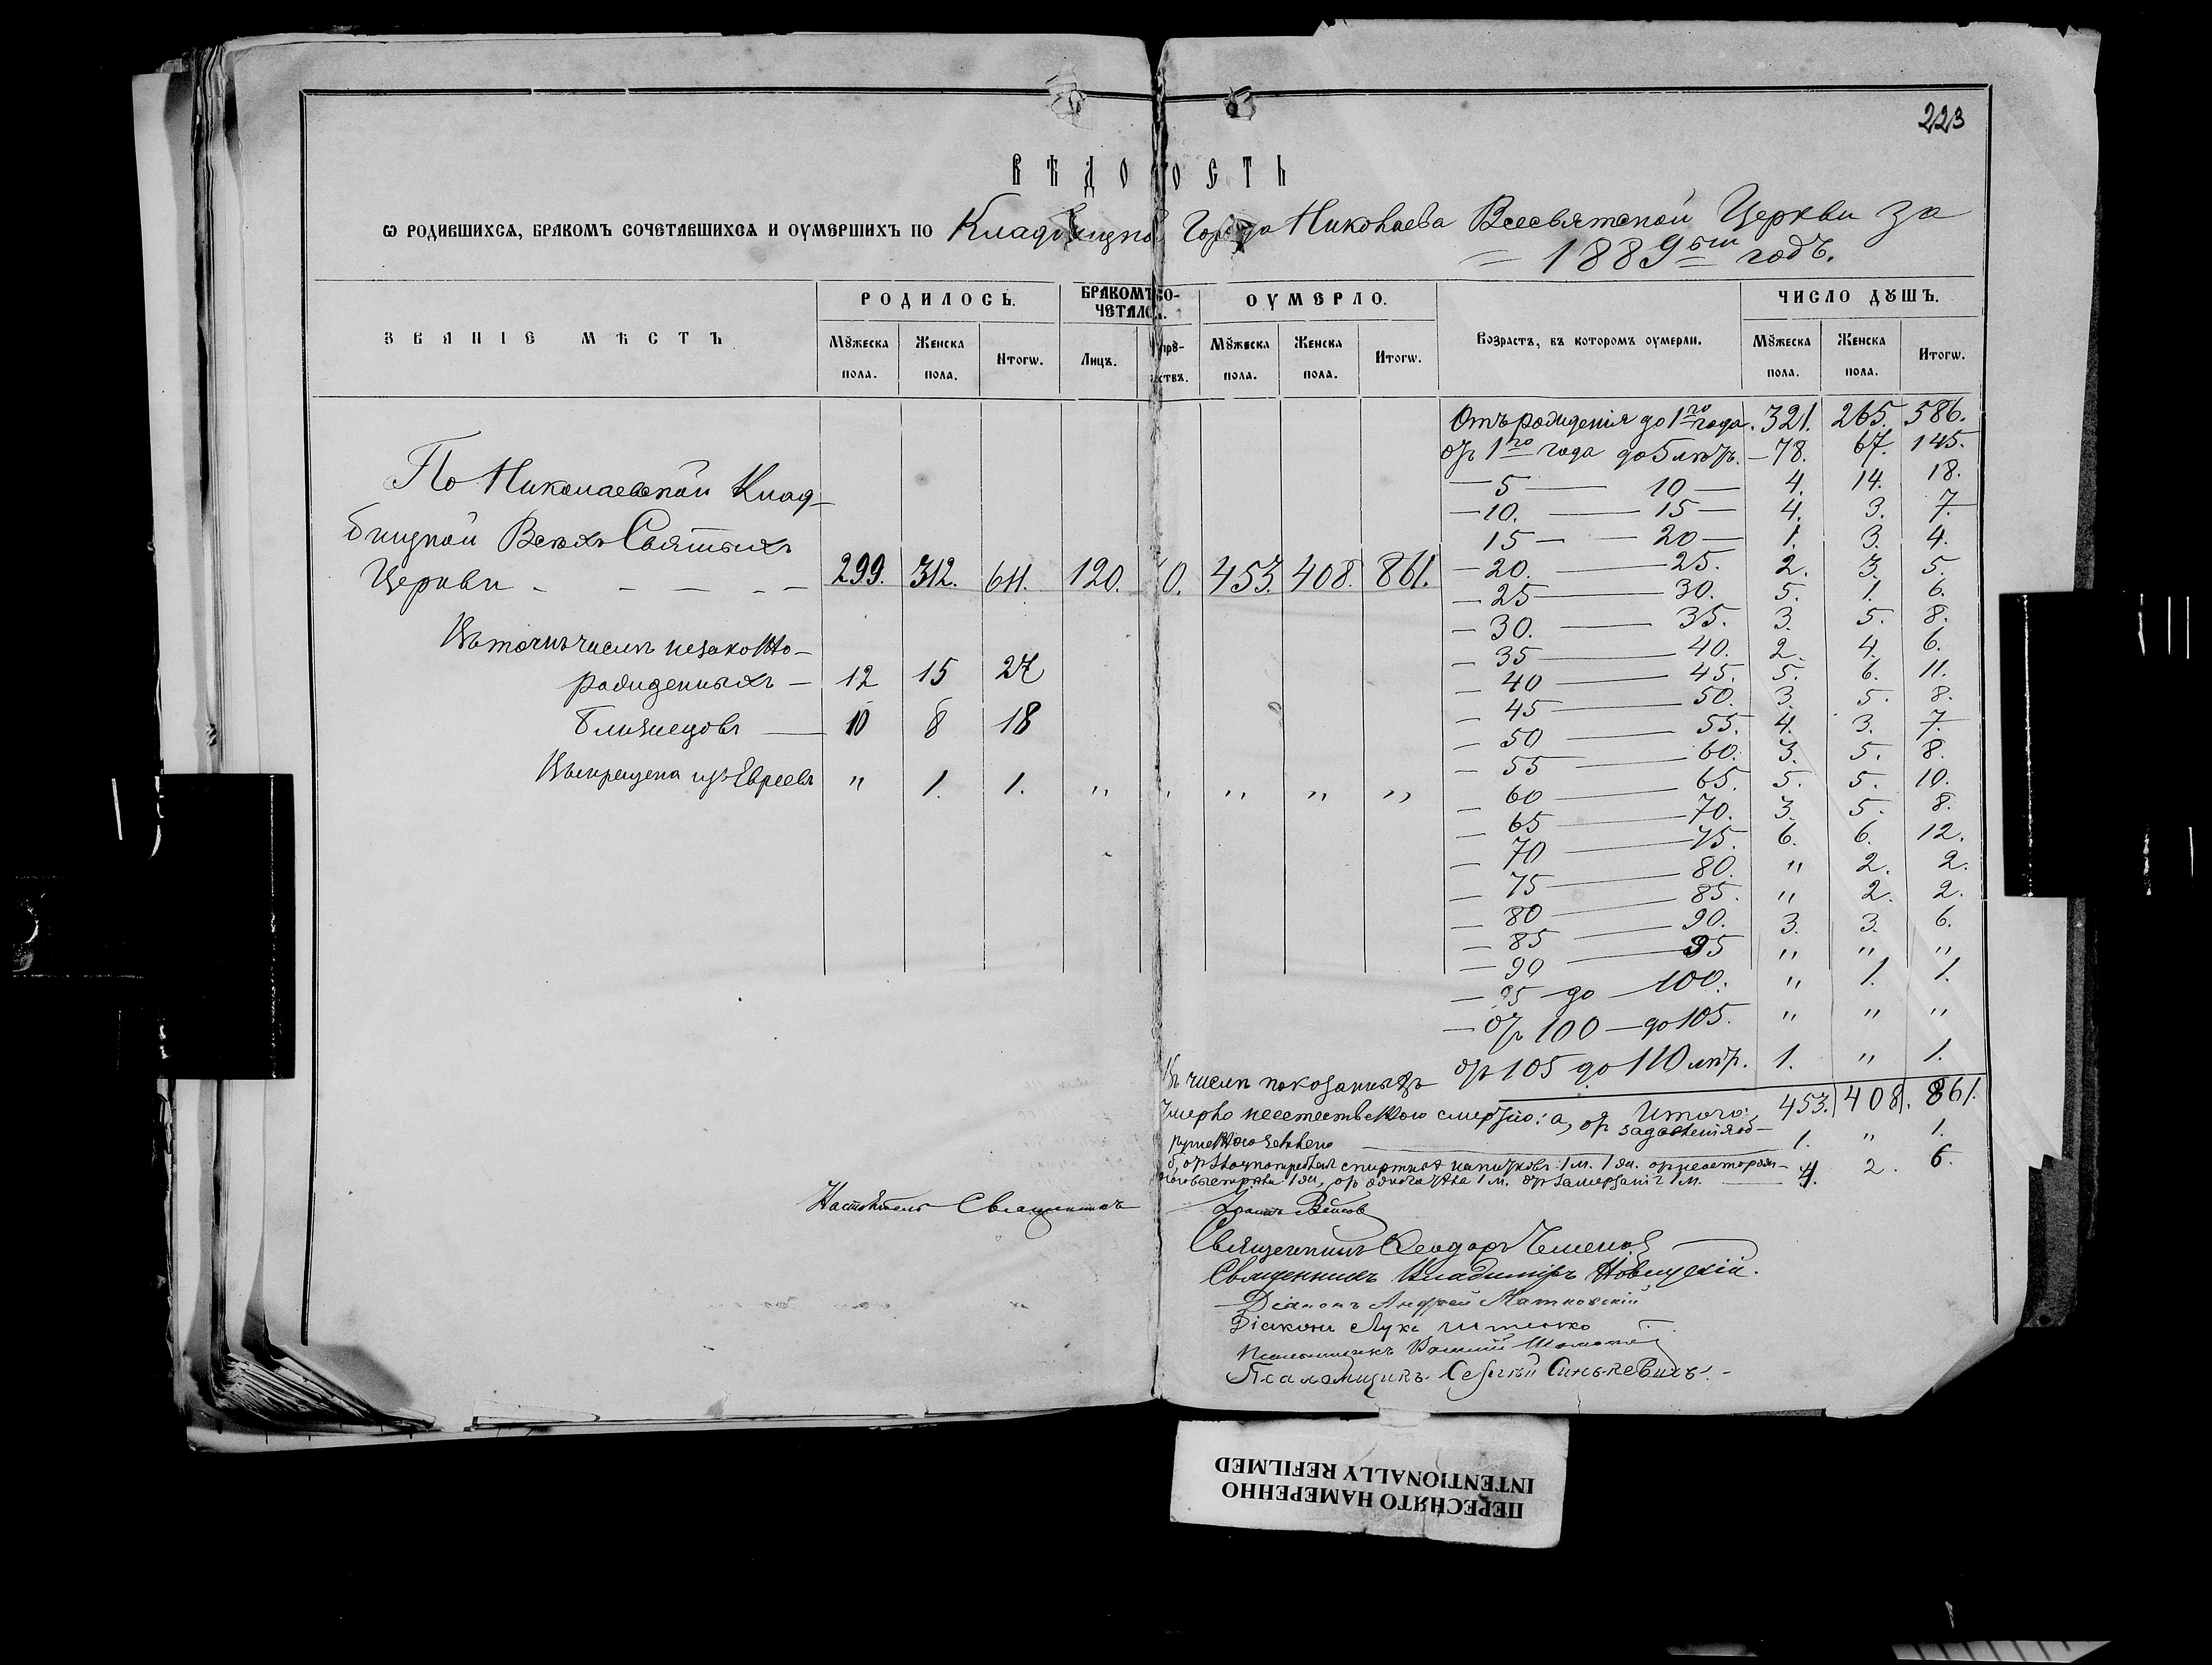 223
ВѢДОМОСТЬ
Ѡ РОДИВШИХСѦ, БРАКОМЪ СОЧЕТАВШИХСѦ И ОУМЕРШИХЪ ПО Кладбищной Города Николаева Всесвятской Церкви за
= 1889ый годъ.
ЗВАНІЕ МѢСТЪ
РОДИЛОСЬ.
БРАКОМЪ СО-
ЧЕТАЛОСЬ.
ОУМЕРЛО.
Возрастъ, въ которомъ оумерли.
ЧИСЛО ДꙊШЪ.
Мꙋжеска пола.
Женска пола.
Итогѡ.
Лицъ.
Мꙋжеска пола.
Женска пола.
Итогѡ.
Мꙋжеска пола.
Женска пола.
Итогѡ.
Отъ рожденія до 1го года. 321. 265. 586.
отъ 1го года до 5 лѣтъ. — 78. 67. 145.
— 5 — 10 — 4. 14. 18.
— 10. — 15 — 4. 3. 7.
15 — — 20 — 1. 3. 4.
— 20. — 25. 2. 3. 5.
— 25 — 30. 5. 1. 6.
— 30. — 35. 3. 5. 8.
— 35 — 40. 2. 4. 6.
— 40 — 45. 5. 6. 11.
— 45 — 50. 3. 5. 8.
— 50 — 55. 4. 3. 7.
— 55 — 60. 3. 5. 8.
— 60 — 65. 5. 5. 10.
— 65 — 70. 3. 5. 8.
— 70 — 75. 6. 6. 12.
— 75 — 80. " 2. 2.
— 80 — 85. " 2. 2.
— 85 — 90. 3. 3. 6.
— 90 — 95 " " "
— 95 до 100. " 1. 1.
— отъ 100 — до 105. " " "
отъ 105 до 110 лѣтъ. 1. " 1.
Итого: 453. 408. 861.
По Николаевской Клад-
бищной Всѣхъ Святыхъ
Церкви - - - - - 299. 312. 611. 120. 60. 453. 408. 861.
Въ томъ числѣ незаконно-
рожденныхъ — 12 15 27
близнецовъ — 10 8 18
Выкрещена изъ Евреевъ " 1. 1. " " " " "
Въ числѣ показанныхъ
умерло неестественною смертію: а, отъ задавленія об-
1. " 1.
б, отъ злоупотребл спиртных напитковъ 1 м. 1 ж. от неосторож-
наго выстрѣла 1 ж, от замерзанія 1 м. — 4. 2. 6.
Настоятель Священникъ
Священникъ Ѳеодоръ
Священникъ Владиміръ Новицкій.
Діаконъ Андрей Матковскій
Діаконъ Лука
Псаломщикъ
Псаломщикъ Сергѣй Синькевичъ. -
ПЕРЕСНЯТО НАМЕРЕННО
INTENTIONALLY REFILMED